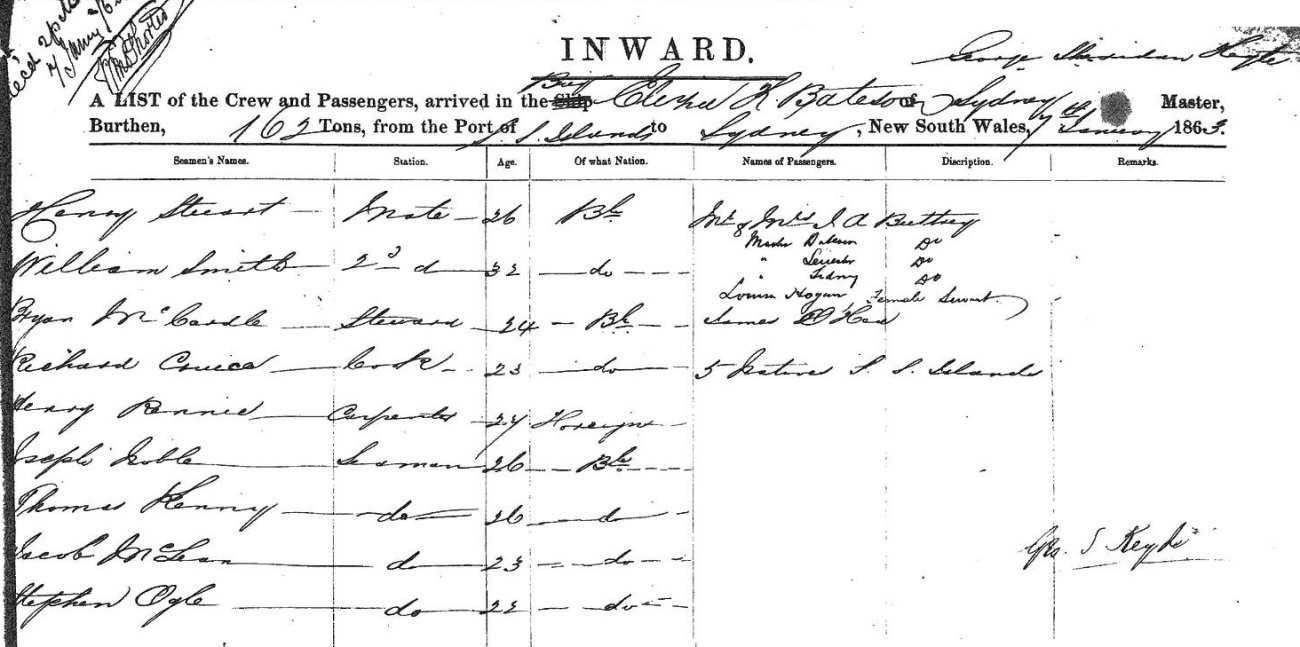 Rec'd
INWARD.
George Sheridan Keyte
A LIST of the Crew and Passengers, arrived in the Ship Brig K Bateson of Sydney Master,
Burthen, 162 Tons, from the Port of S. S. Islands to Sydney, New South Wales, 7th January 1863.
Seamen's Names. Station. Age. Of what Nation. Names of Passengers. Discription. Remarks.
Henry Steuart Mate 26 Bh Mr & Mrs I A Buttrey
Master Do
William Smith 2d do 32 do " Do
" Sidney Do
Louisa Hogan Female Servant
Bryan McCardle Steward 24 Bh James O'Hea
Richard Cook 23 do 5 Native S. S. Islands
Henry Rennie Carpenter 24 Foreign
Joseph Noble Seaman 26 Bh
Thomas Kenny do 26 do
Jacob McLean do 23 do
Geo. S Keyte
Stephen Ogle do 22 do